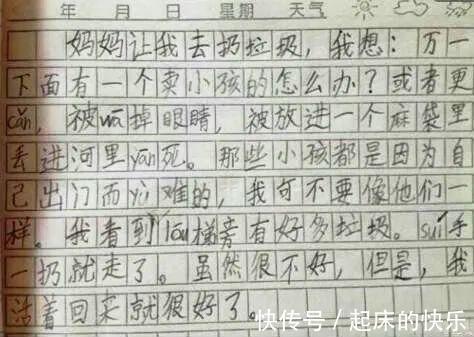 年 月 日 星期 天气
妈妈让我去扔垃圾，我想：万一
下面有一个卖小孩的怎么办？或者更
cǎn，被wā掉眼睛，被放进一个麻袋里
丢进河里yān死。那些小孩都是因为自
己出门而yù难的，我可不要像他们一
样。我看到lóu梯旁有好多垃圾。suí手
一扔就走了。虽然很不好，但是，我
活着回来就很好了。
快传号/起床的快乐